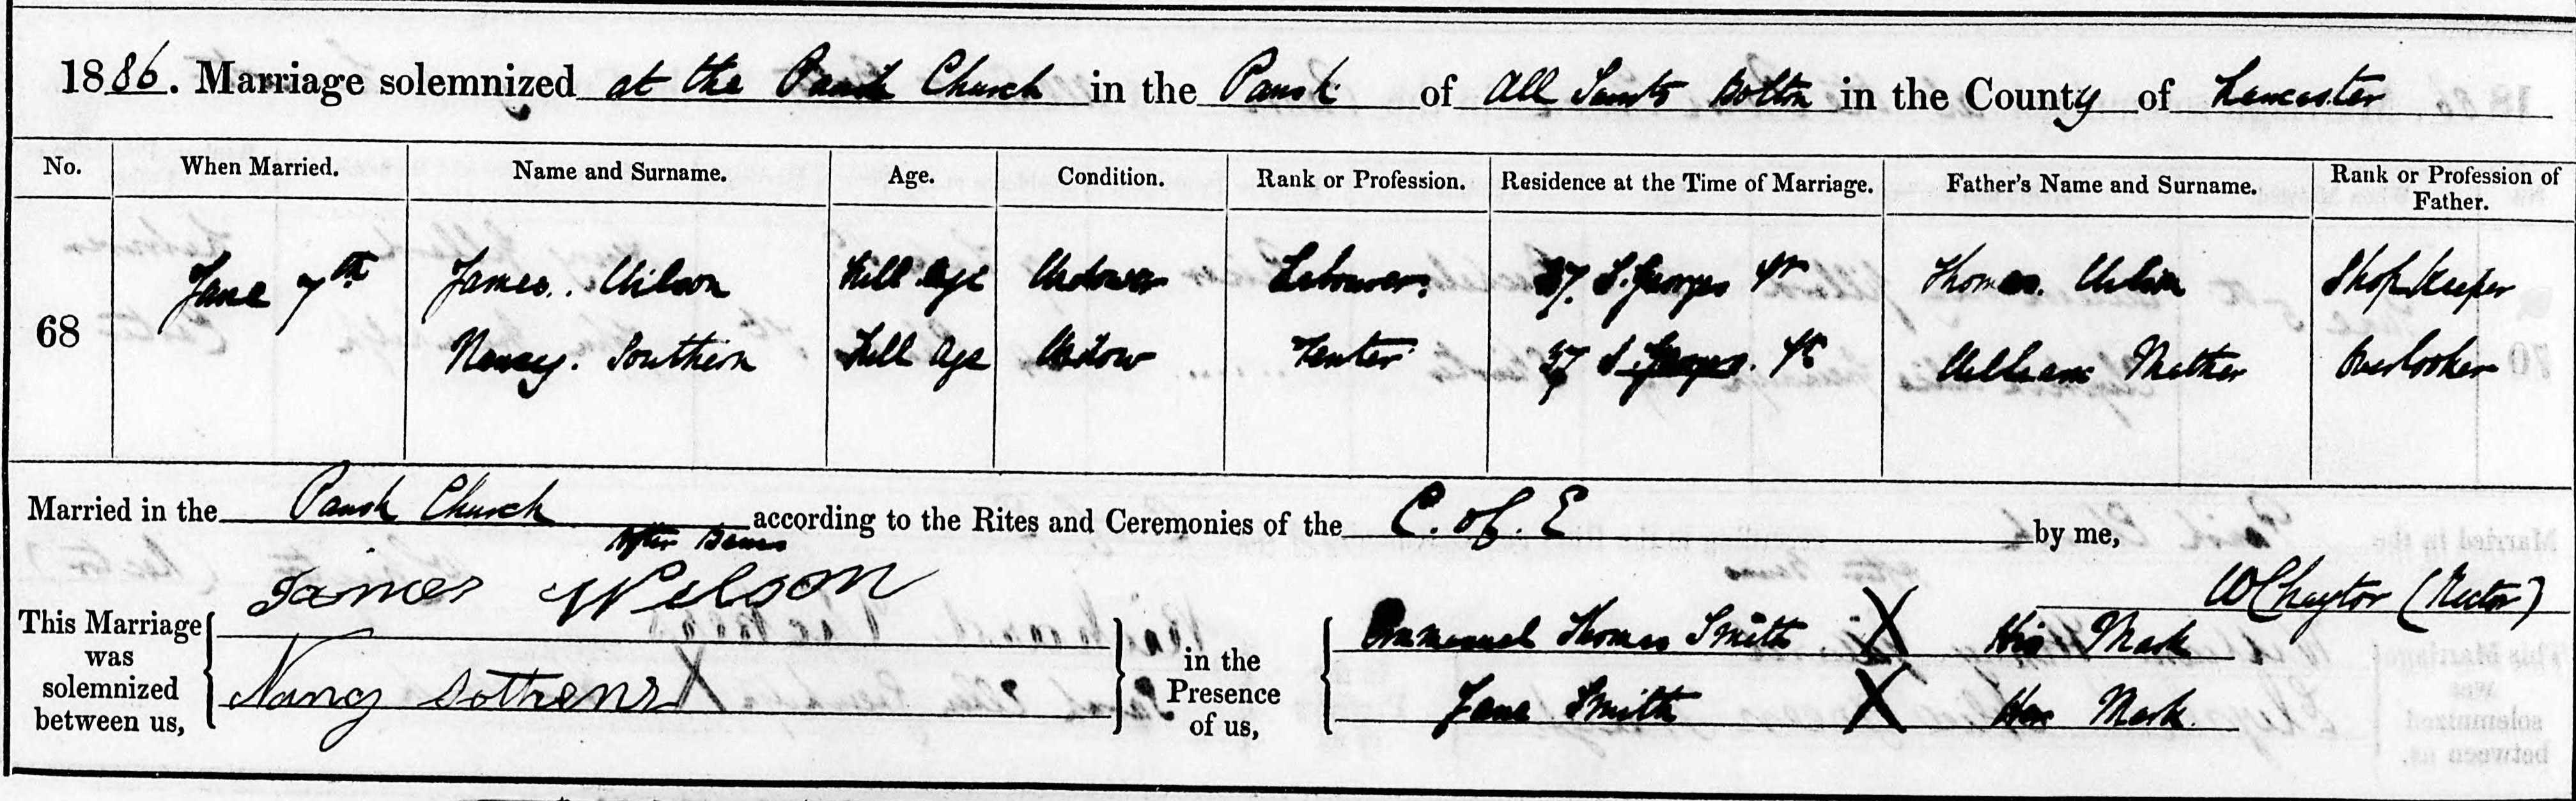 1886. Marriage solemnized at the Parish Church in the Parish of All Saints Bolton in the County of Lancaster
No. When Married. Name and Surname. Age. Condition. Rank or Profession. Residence at the Time of Marriage. Father's Name and Surname. Rank or Profession of Father.
68 June 7th James Wilson Full Age Widower Labourer 37 St Georges St Thomas Wilson Shop Keeper
Nancy Southern Full Age Widow Tenter 37 St Georges St William Mather Overlooker
Married in the Parish Church according to the Rites and Ceremonies of the C. of. E by me,
after Banns
W Chaytor (Rector)
This Marriage was solemnized between us,
James Wilson
Nancy Sotherns X
in the Presence of us,
Emmanuel Thomas Smith X His Mark
Jane Smith X Her Mark.